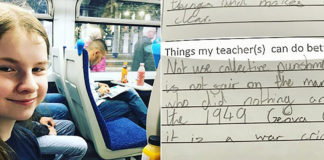 Things
clear.
Things my teacher(s) can do bet
Not use collective punishm
is not fair on the man
who did nothing an
the 1949 Geneva
it is a war cri